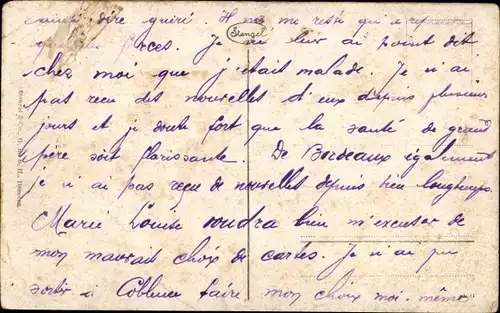 dire guéri. Il ne me reste qu'à
forces. Je ne leur ai point dit
Stengel
chez moi que j'étais malade. Je n'ai
pas reçu des nouvelles d'eux depuis plusieurs
jours et je doute fort que la santé de grand
père soit florissante. De Bordeaux également
je n'ai pas reçu de nouvelles depuis bien longtemps
Marie Louise voudra bien m'excuser de
mon mauvais choix de cartes. Je n'ai pu
sortir à Coblence faire mon choix moi-même
Stengel & Co., G. m. b. H., Dresden